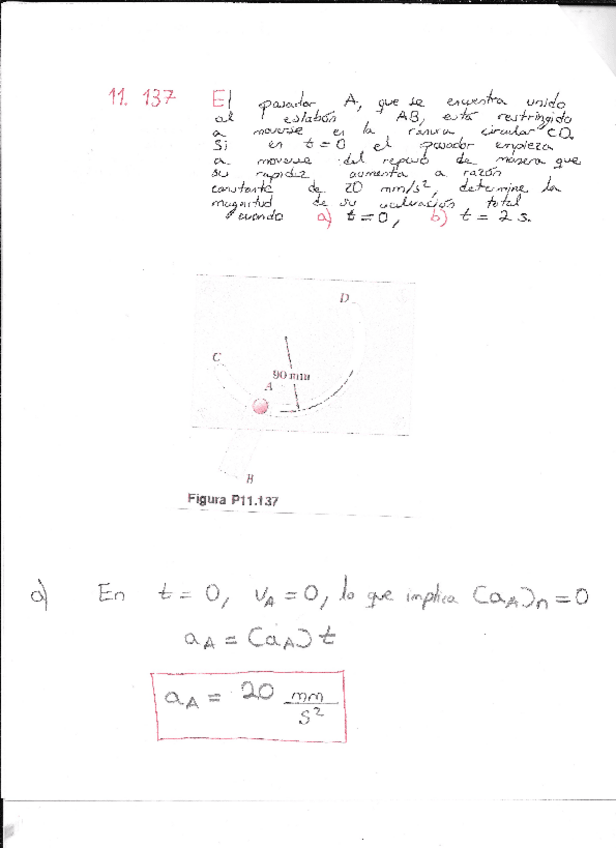 11. 137 El pasador A, que se encuentra unido
al eslabón AB, está restringido
a moverse en la ranura circular CD.
Si en t = 0 el pasador empieza
a moverse del reposo de manera que
su rapidez aumenta a razón
constante de 20 mm/s², determine la
magnitud de su aceleración total
cuando a) t = 0, b) t = 2 s.
D
C
90 mm
A
B
Figura P11.137
a) En t = 0, vA = 0, lo que implica (aA)n = 0
aA = (aA) t
aA = 20 mm/s²